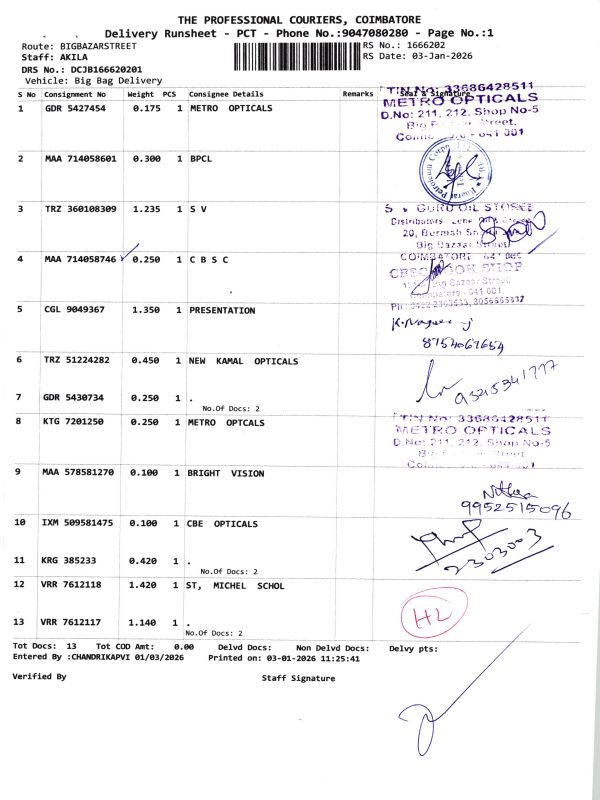 THE PROFESSIONAL COURIERS, COIMBATORE
Delivery Runsheet - PCT - Phone No.:9047080280 - Page No.:1
Route: BIGBAZARSTREET RS No.: 1666202
Staff: AKILA RS Date: 03-Jan-2026
DRS No.: DCJB166620201
Vehicle: Big Bag Delivery
S No Consignment No Weight PCS Consignee Details Remarks Seal & Signature
TIN No: 33686428511
1 GDR 5427454 0.175 1 METRO OPTICALS METRO OPTICALS
D.No: 211, 212, Shop No-5
Street,
641 001
2 MAA 714058601 0.300 1 BPCL
3 TRZ 360108309 1.235 1 S V GURU OIL STORES
Distributors
20, Bermah
Big Bazaar Street
4 MAA 714058746 0.250 1 C B S C COIMBATORE
SHOP
Bazaar Street,
641 001.
5 CGL 9049367 1.350 1 PRESENTATION
8754067654
6 TRZ 51224282 0.450 1 NEW KAMAL OPTICALS
7 GDR 5430734 0.250 1 .
No.Of Docs: 2
TIN No: 33686428511
8 KTG 7201250 0.250 1 METRO OPTCALS METRO OPTICALS
D.No: 211, 212, Shop No-5
9 MAA 578581270 0.100 1 BRIGHT VISION
9952515096
10 IXM 509581475 0.100 1 CBE OPTICALS
2303003
11 KRG 385233 0.420 1 .
No.Of Docs: 2
12 VRR 7612118 1.420 1 ST, MICHEL SCHOL
HL
13 VRR 7612117 1.140 1 .
No.Of Docs: 2
Tot Docs: 13 Tot COD Amt: 0.00 Delvd Docs: Non Delvd Docs: Delvy pts:
Entered By :CHANDRIKAPVI 01/03/2026 Printed on: 03-01-2026 11:25:41
Verified By Staff Signature